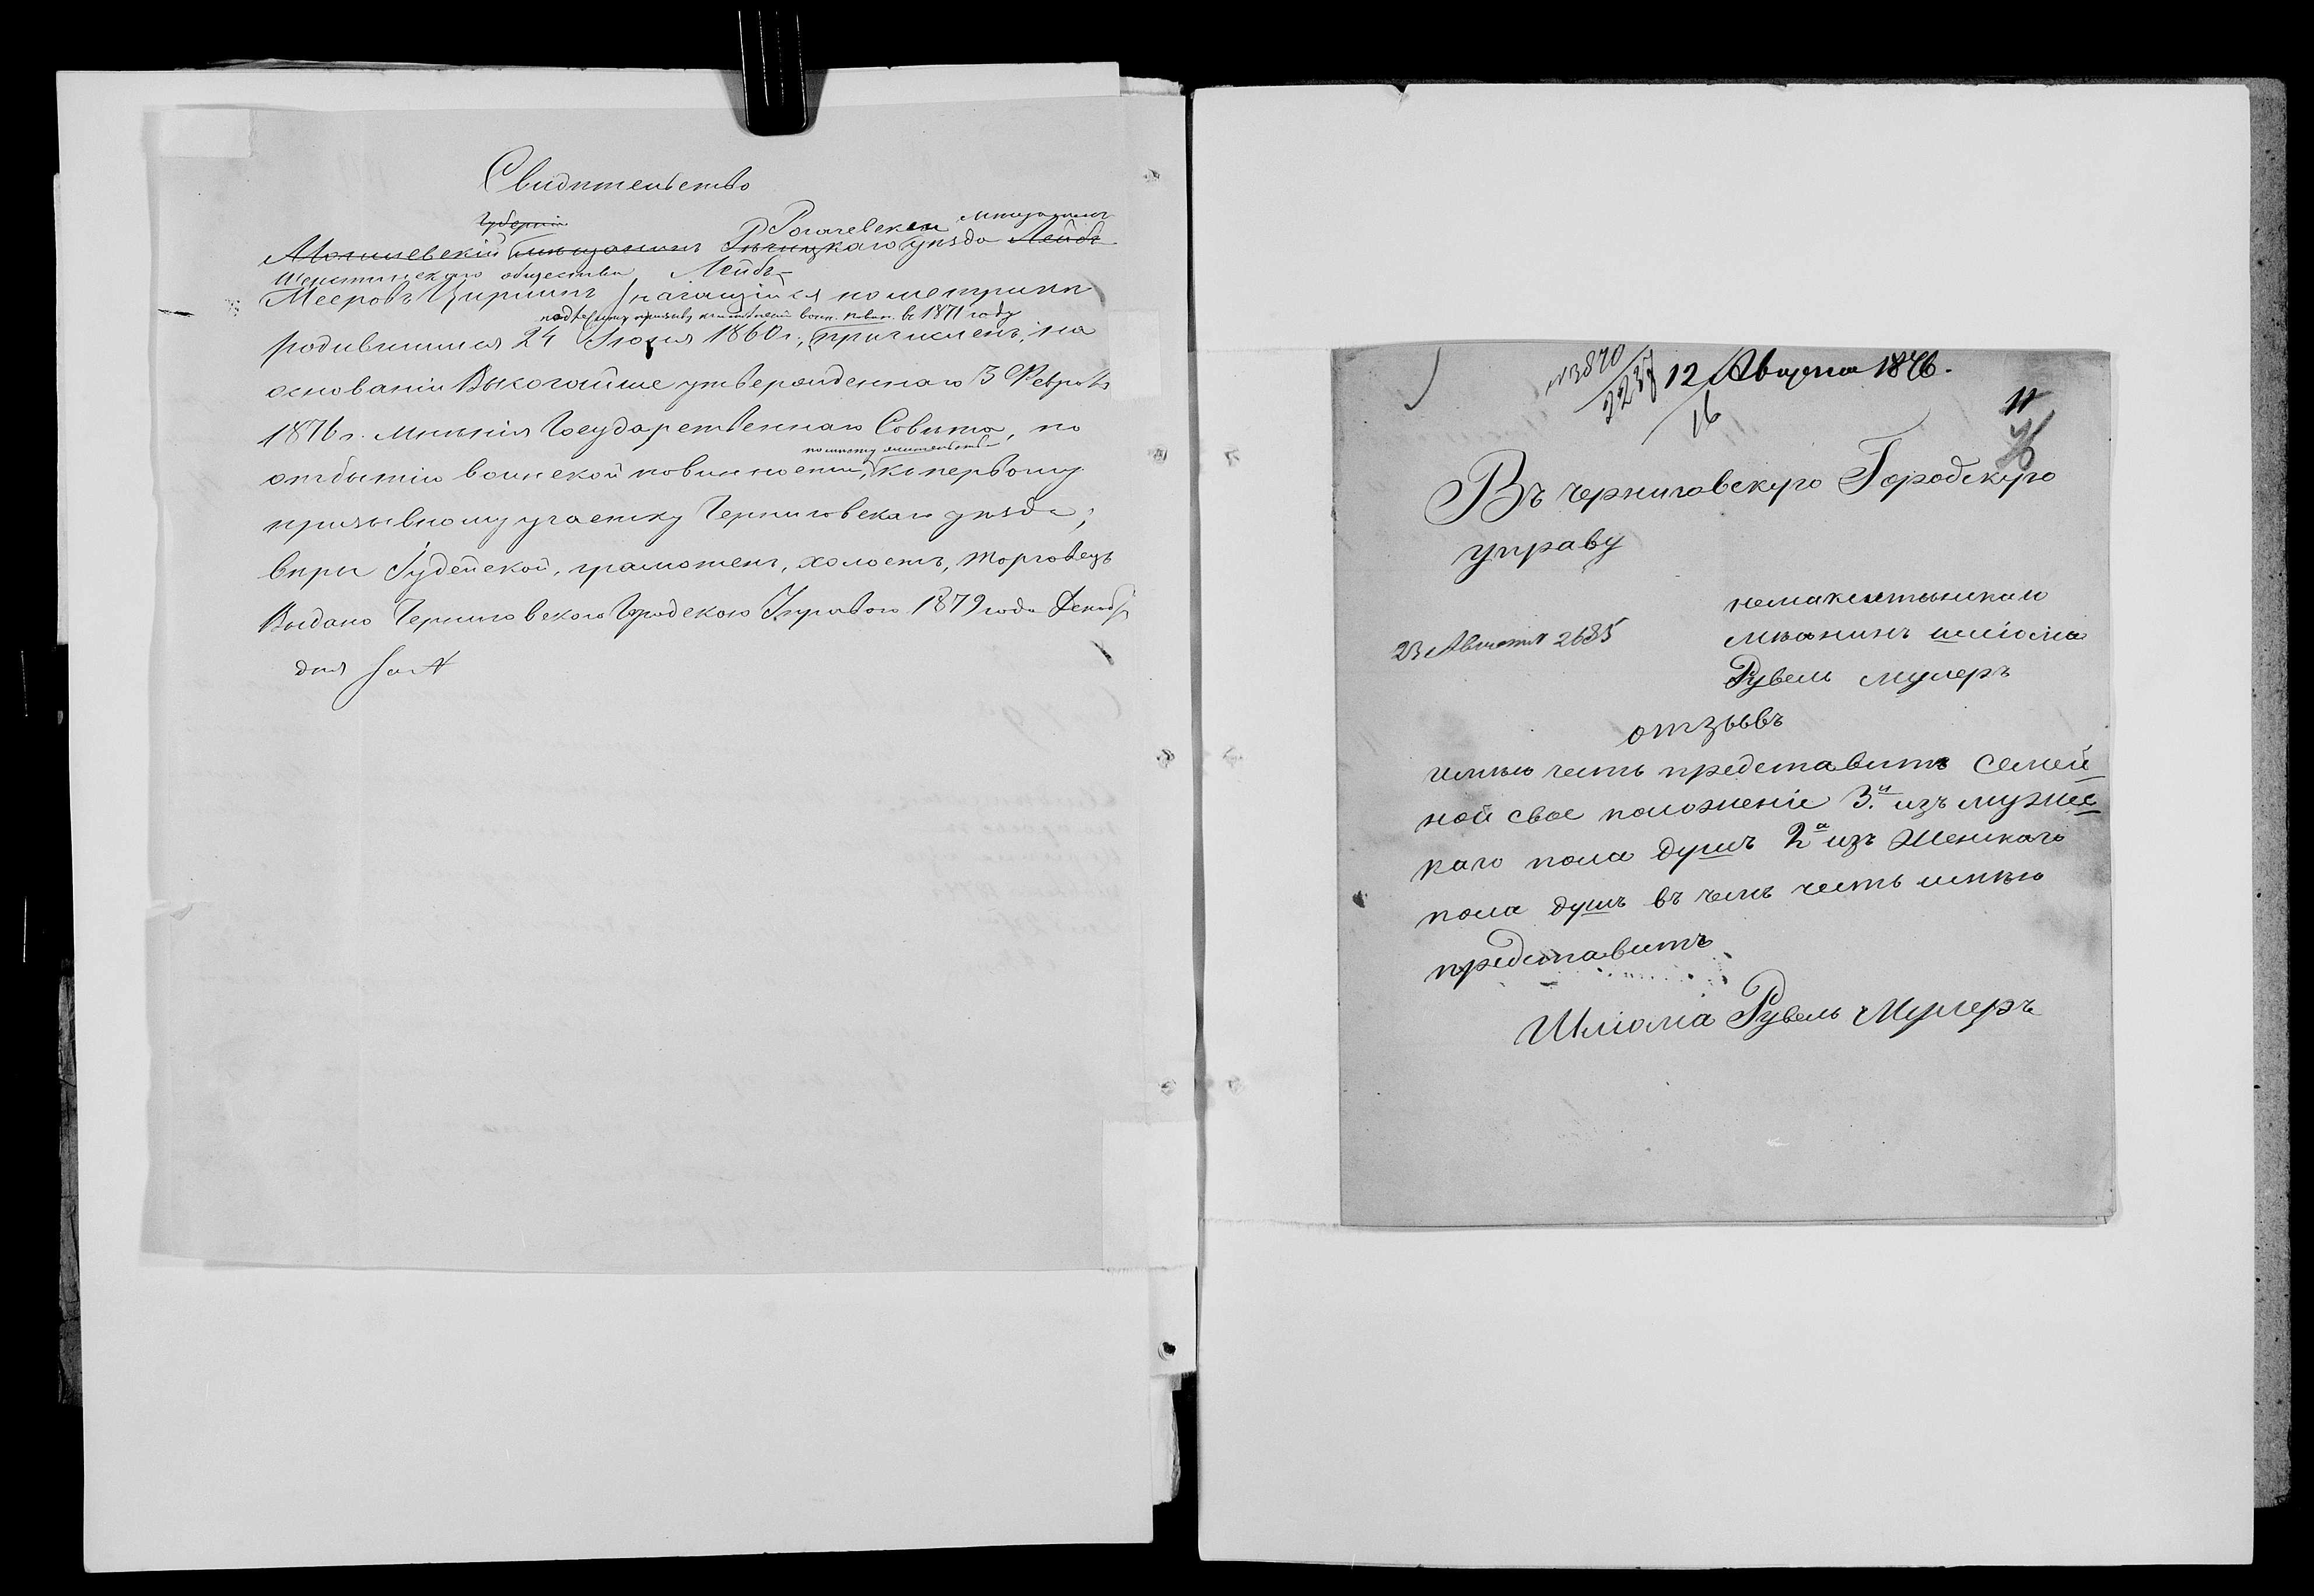 Свидѣтельство
Губерніи Рогачевскаго мѣщанинъ
Могилевскій мѣщанинъ Рѣчицкаго уѣзда Лейба
общества Лейба
Мееровъ Цирлинъ значащійся по метрикѣ
подлежащій призыву воин. повин. въ 1871 году
родившимся 24 Іюля 1860 г., причисленъ, на
основаніи Высочайше утвержденнаго 3 Февраля
1876 г. мнѣнія Государственнаго Совѣта, по
по мѣсту жительства
отбытію воинской повинности, къ первому
призывному участку Черниговскаго уѣзда;
вѣры Іудейской, грамотенъ, холостъ, торговецъ
Выдано Черниговскою Городскою Управою 1879 года Декабр
дня
№3870
2237 12 Августа 1876.
16
11
Въ черниговскую Городскую
управу
23 Августа 2685
мѣанинъ шліома
Рувель мулеръ
отзывъ
имѣю честь представитъ семей
ной свое положеніе 3.и изъ мужес
каго пола душъ 2а изъ женскаго
пола душъ въ чемъ честь имѣю
представитъ
Шліома Рувель Мулеръ